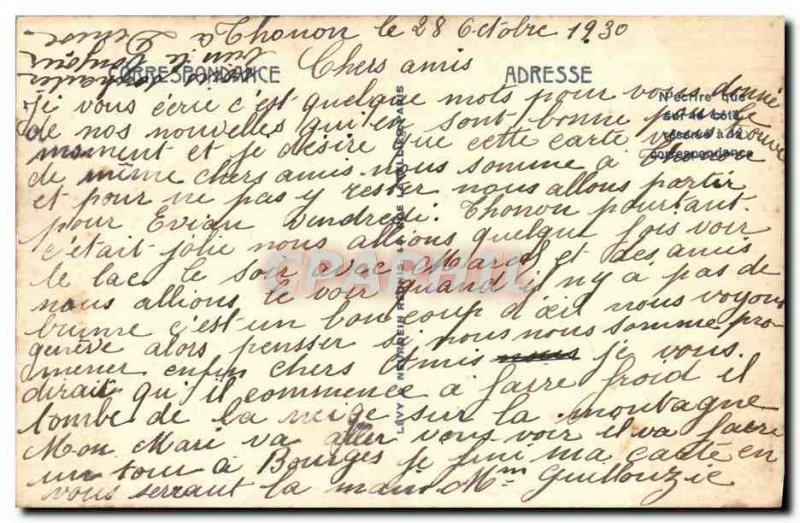 à Thonon le 28 Octobre 1930
Chers amis
CORRESPONDANCE
ADRESSE
N'écrire que
sur ce côté
réservé à la
correspondance
Ji vous écrie c'est quelque mots pour vous donné
de nos nouvelles qui en sont bonne pour le
moment et je désire que cette carte vous trouve
de même chers amis nous somme à
et pour ne pas y rester nous allons partir
pour Evian vendredi. Thonon pourtant
c'était jolie nous allions quelque fois voir
le lac le soir avec Marcel et des amis
nous allions le voir quand il n'y a pas de
brume c'est un boncoup d'œil nous voyons
genève alors pensser si nous nous somme pro
mener enfin chers Amis nous je vous
dirait qu'il commence à faire froid il
tombe de la neige sur la montagne
Mon Mari va aller vous voir il va faire
un tour à Bourges je fini ma carte en
vous serrant la main Mme Guillouzic
LEVY & NEURDEIN REUNIS
PARIS
CPAPHIL